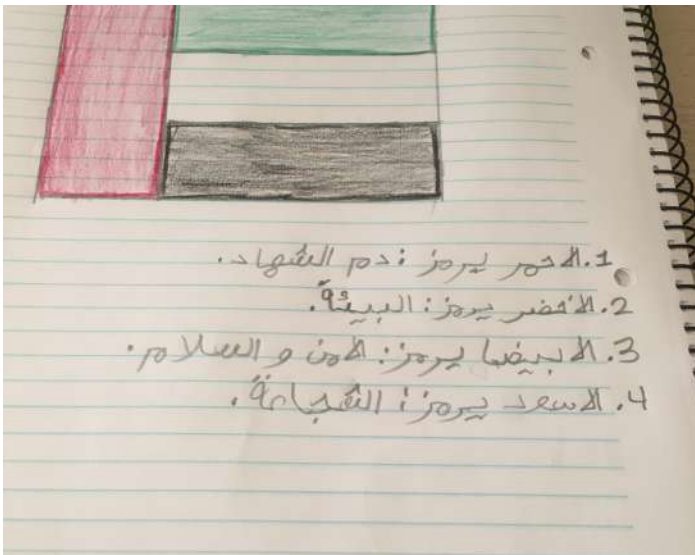 1. الاحمر يرمز: دم الشهاد.
2. الأخضر يرمز: البيئة.
3. الابيضا يرمز: الامن و السلام.
4. الاسعد يرمز: الشجاعة.